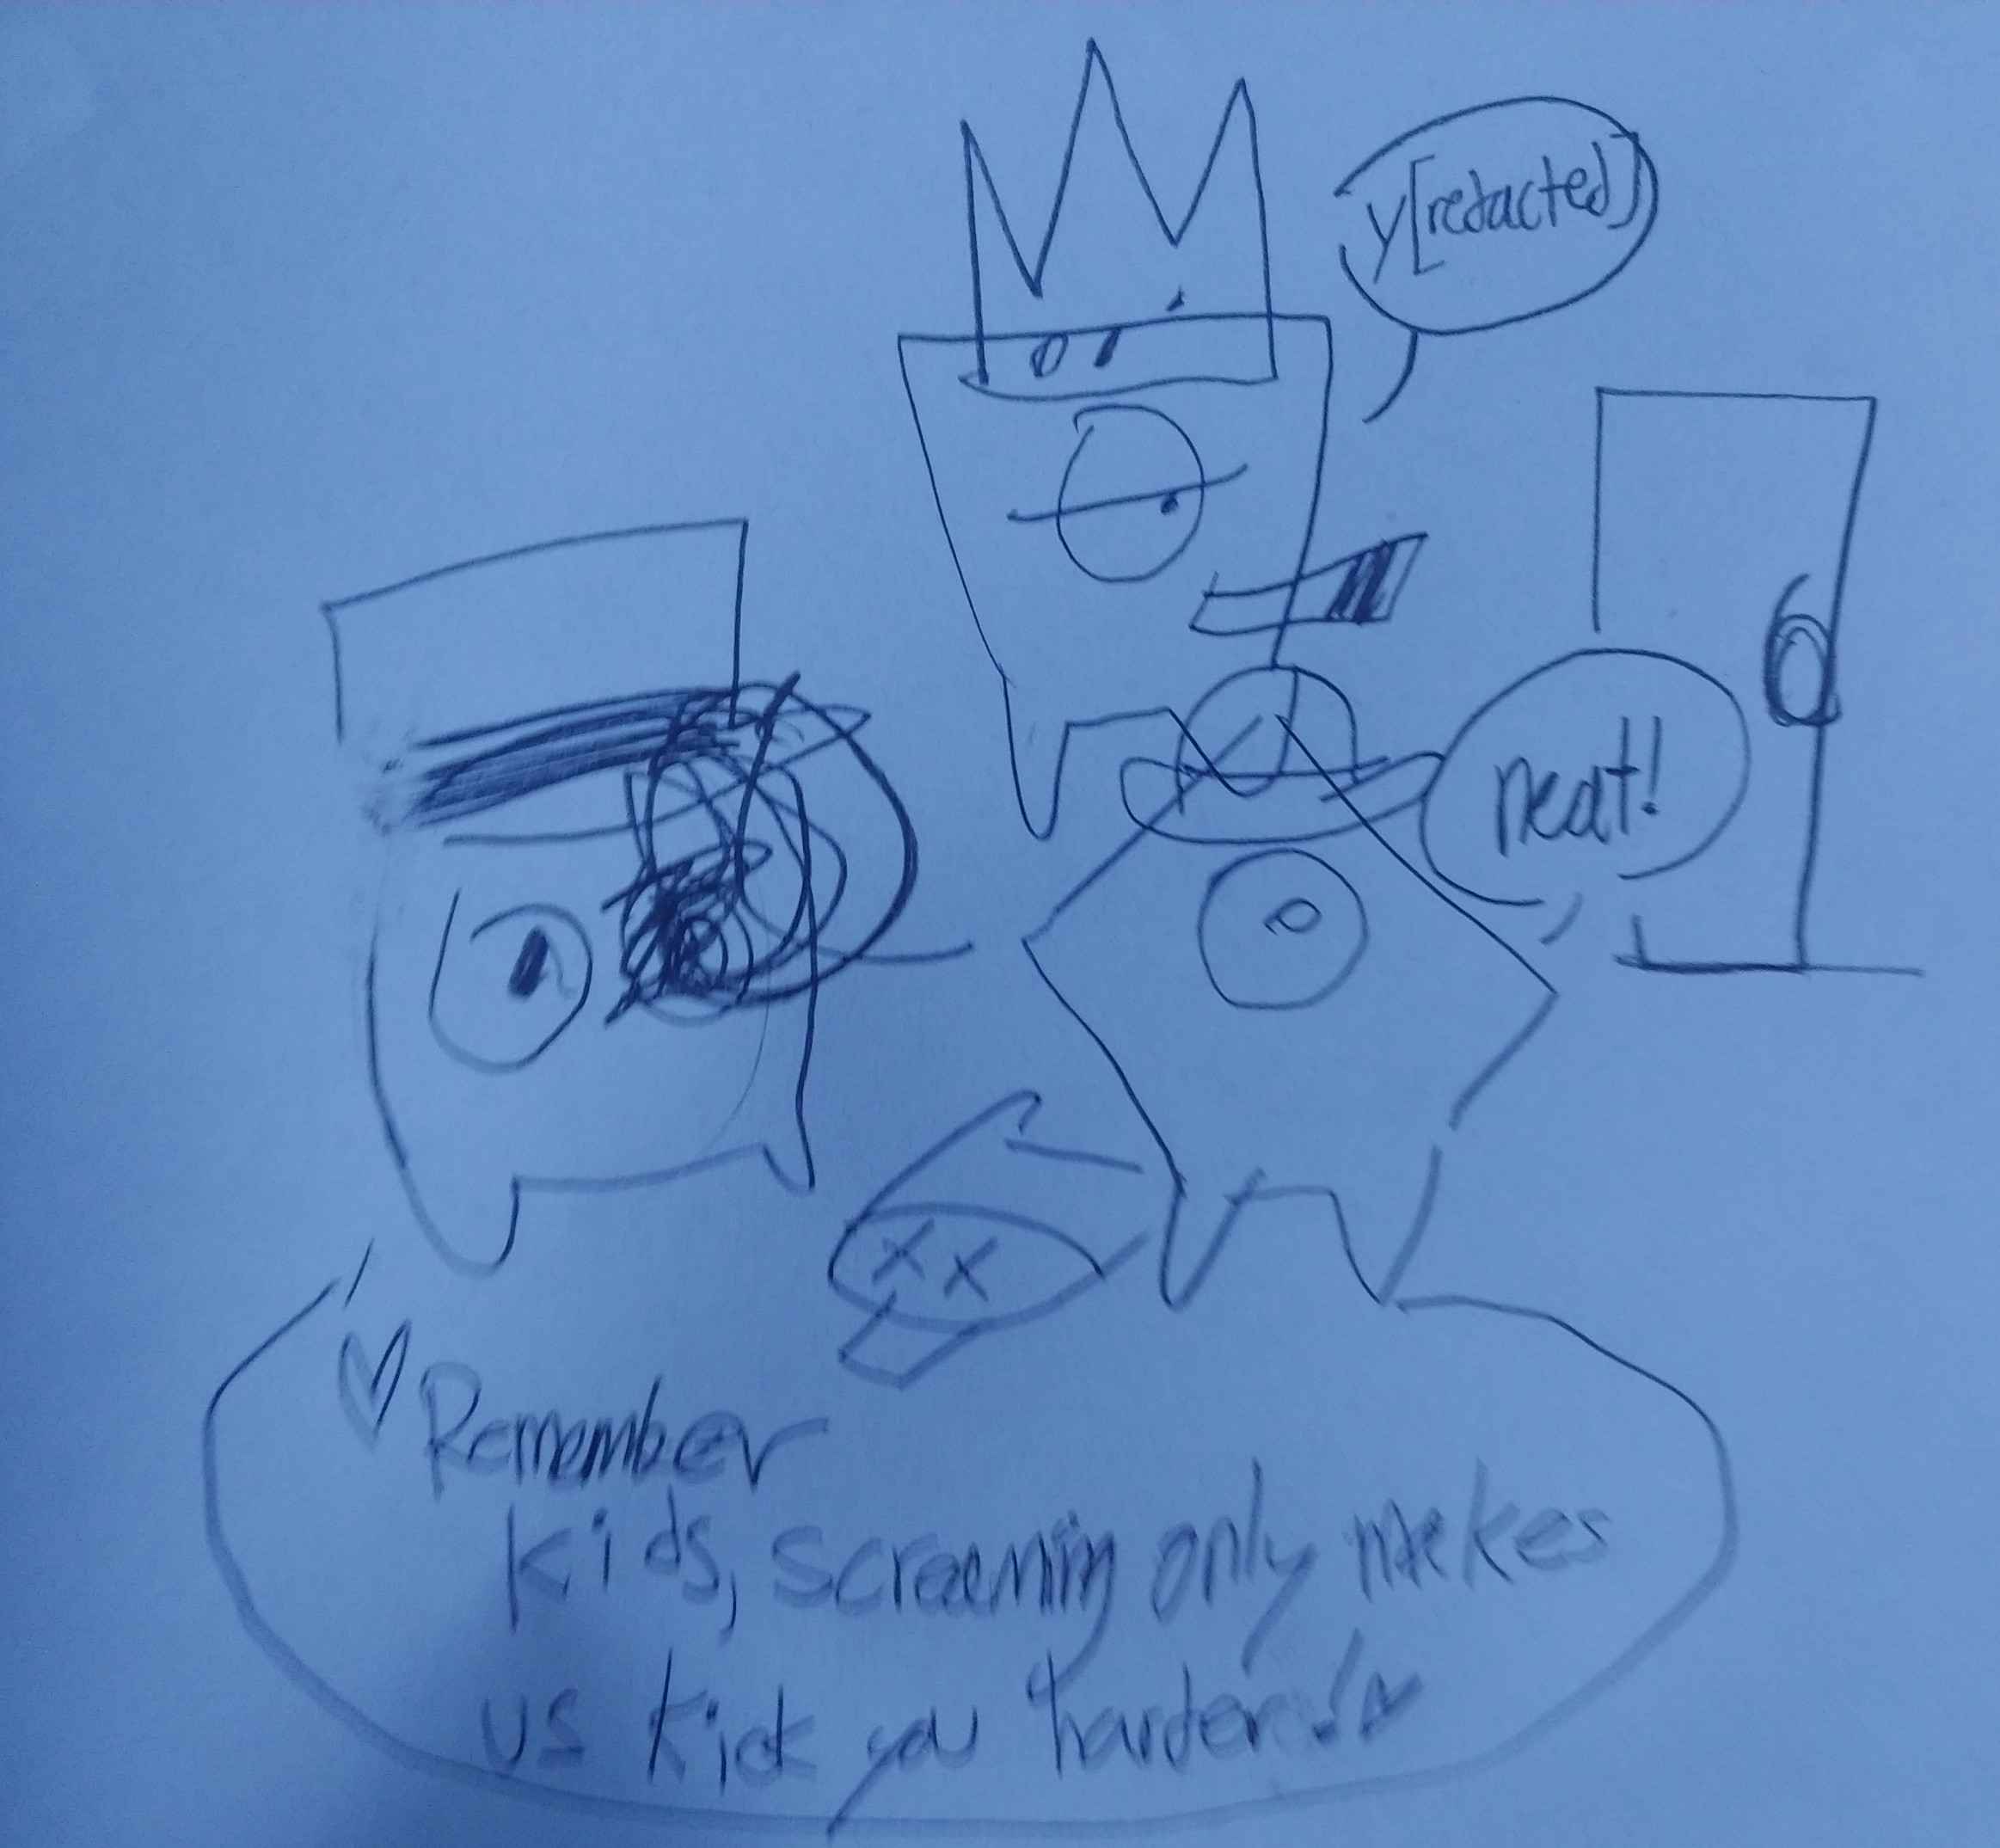 y[redacted]
neat!
Remember
kids, screaming only makes
us kick you harder!~
x x